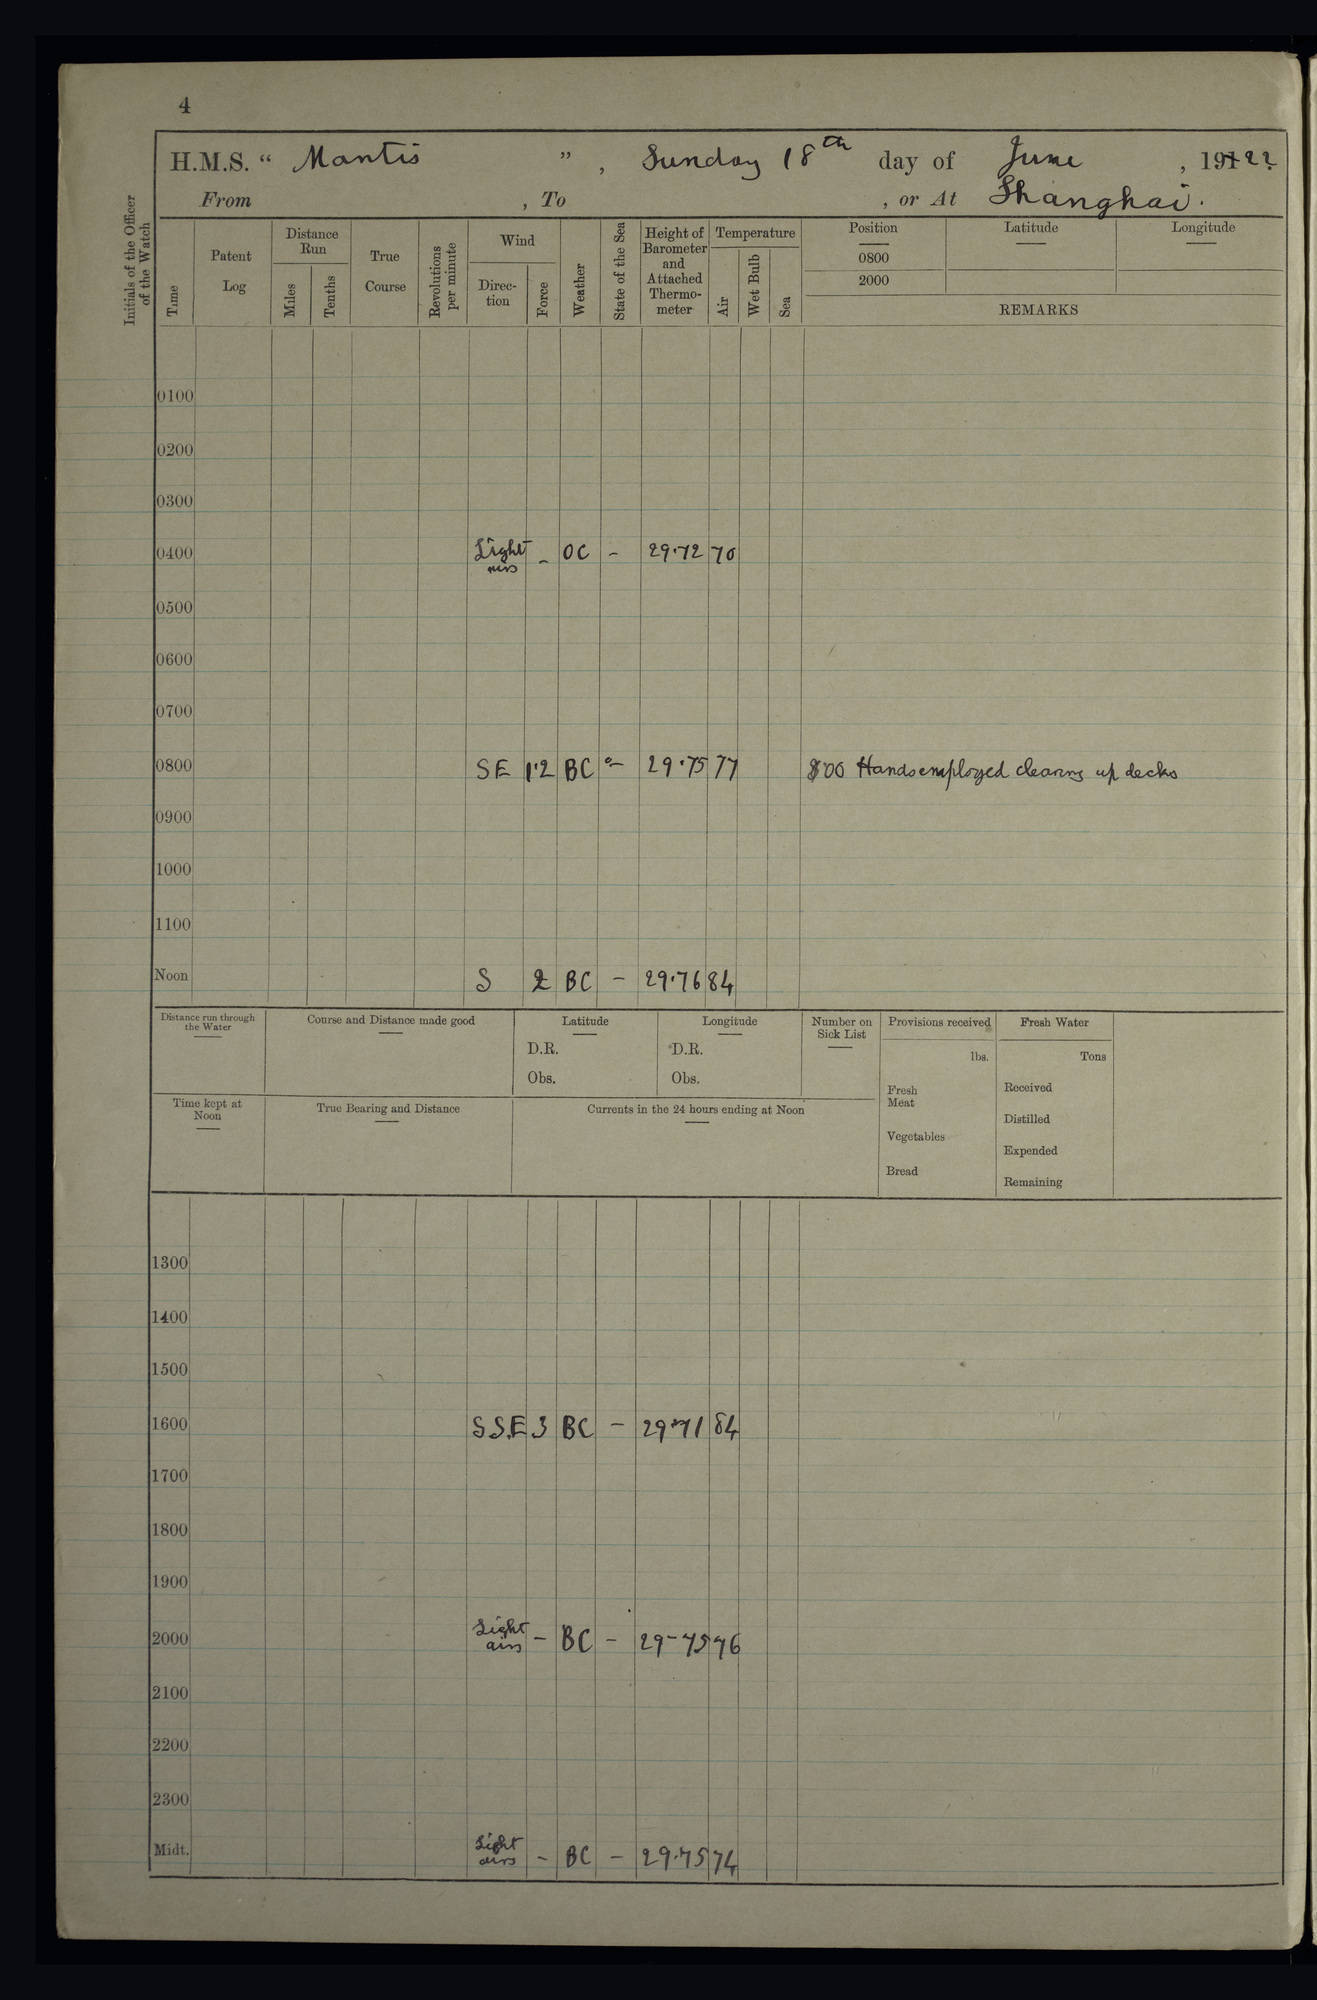 4
H.M.S. “ Mantis ” , Sunday 18th day of June , 1922
From , To , or At Shanghai.
Initials of the Officer of the Watch
Time
Patent Log
Distance Run
Miles
Tenths
True Course
Revolutions per minute
Wind
Direc-tion
Force
Weather
State of the Sea
Height of Barometer and Attached Thermo-meter
Temperature
Air
Wet Bulb
Sea
Position
0800
2000
Latitude
Longitude
REMARKS
0100
0200
0300
0400 Light airs – OC – 29.72 70
0500
0600
0700
0800 SE 1.2 BC – 29.75 77 800 Hands employed clearing up decks
0900
1000
1100
Noon S 2 BC – 29.76 84
Distance run through the Water
Course and Distance made good
Latitude
D.R.
Obs.
Longitude
D.R.
Obs.
Number on Sick List
Provisions received
lbs.
Fresh Meat
Vegetables
Bread
Fresh Water
Tons
Received
Distilled
Expended
Remaining
Time kept at Noon
True Bearing and Distance
Currents in the 24 hours ending at Noon
1300
1400
1500
1600 S.S.E 3 BC – 29.71 84
1700
1800
1900
2000 Light airs – BC – 29–75 76
2100
2200
2300
Midt. Light airs – BC – 29.75 74